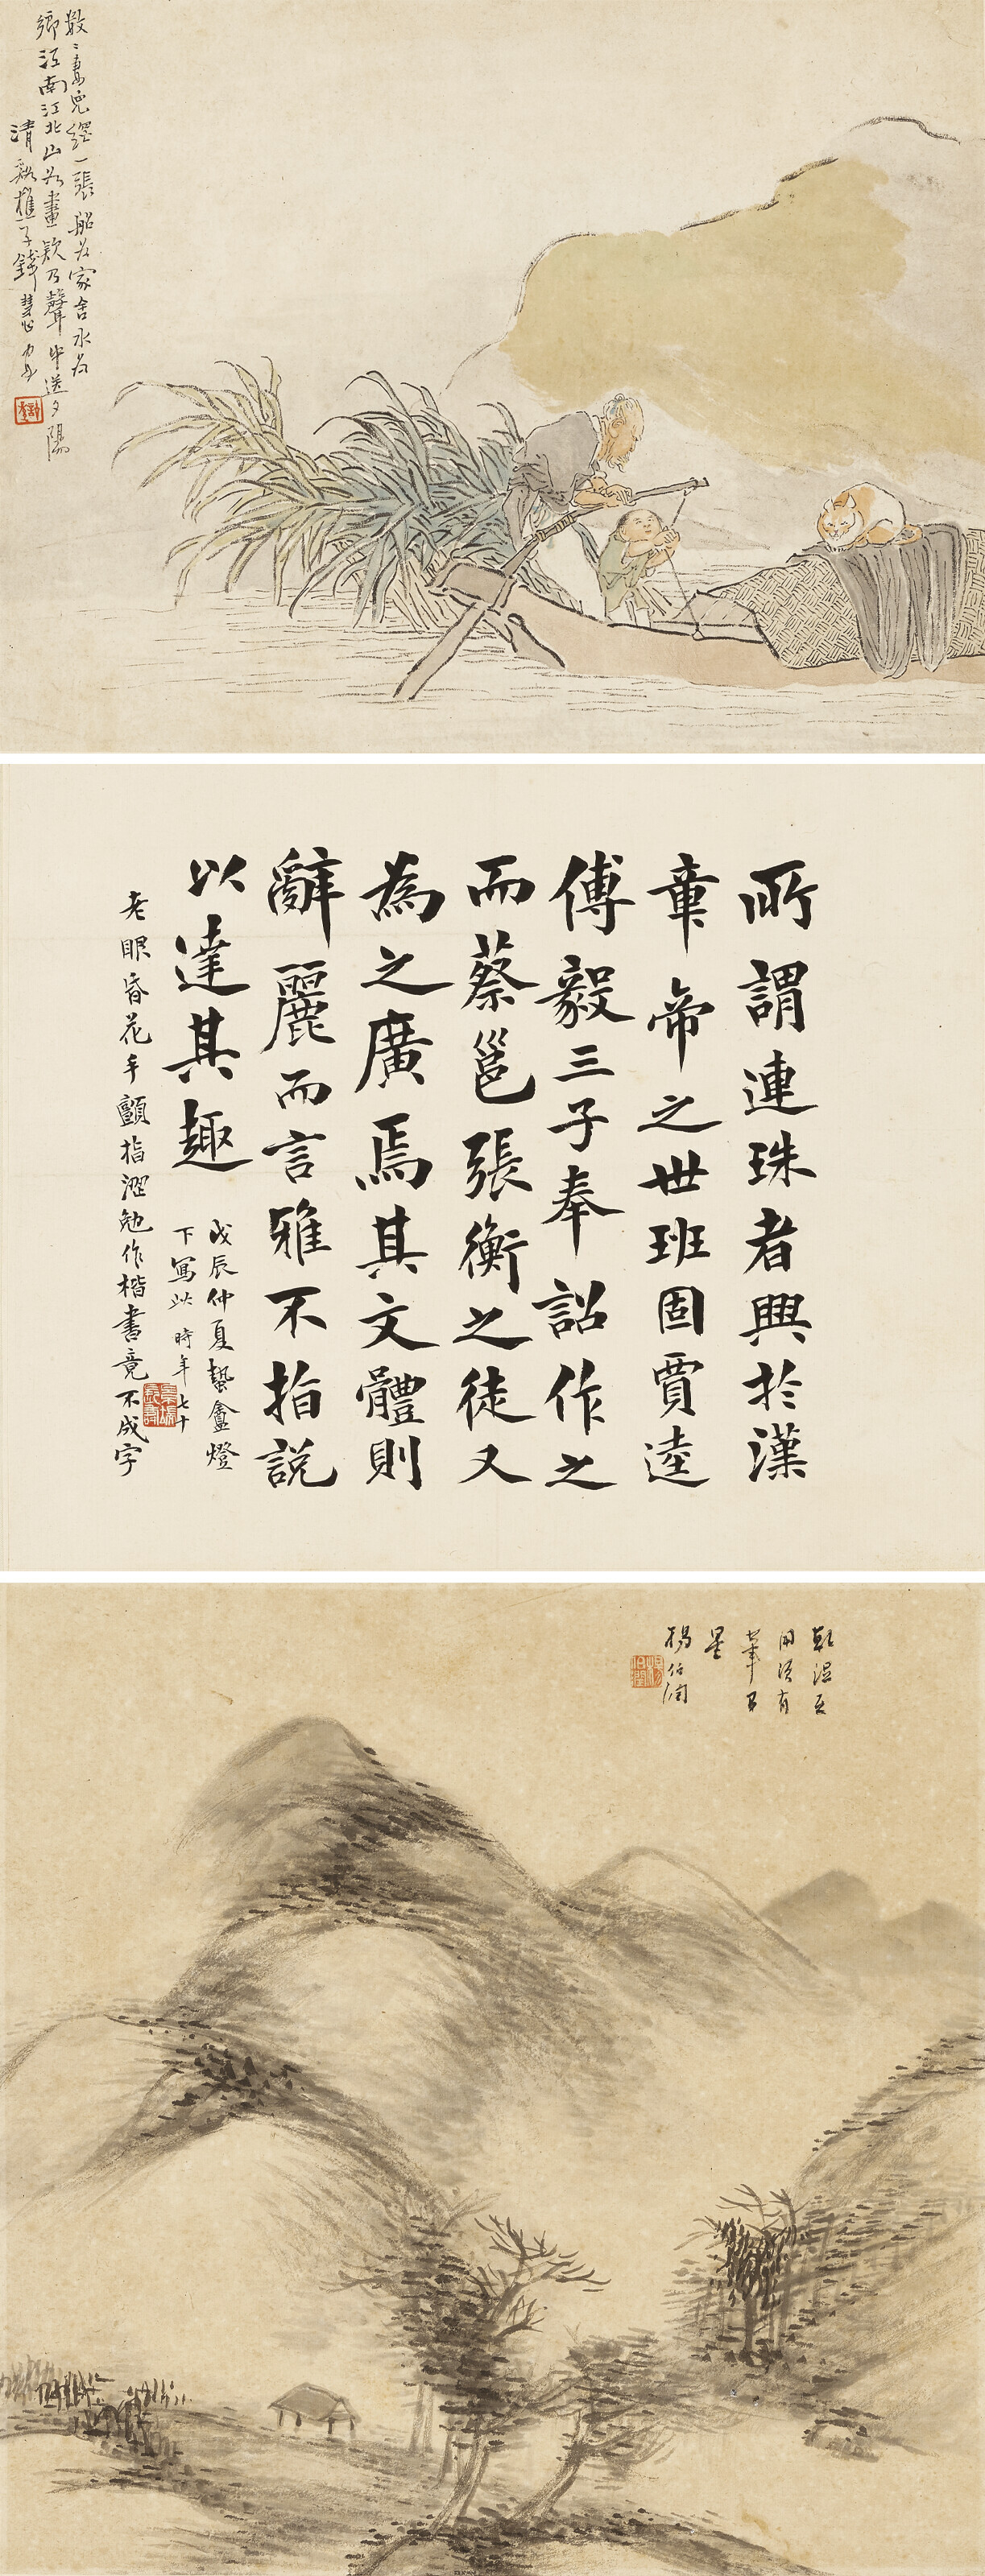 數〻妻兒纜一張船為家舍水為
鄉江南江北山如畫欸乃聲中送夕陽
清谿樵子錢慧安
所謂連珠者興於漢
章帝之世班固賈逵
傅毅三子奉詔作之
而蔡邕張衡之徒又
為之廣焉其文體則
辭麗而言雅不指說
以達其趣
戊辰仲夏蟄盦燈
下寫此時年七十
老眼昏花手顫指澀勉作楷書竟不成字
乾溼互
用須有
筆有
墨
楊伯潤